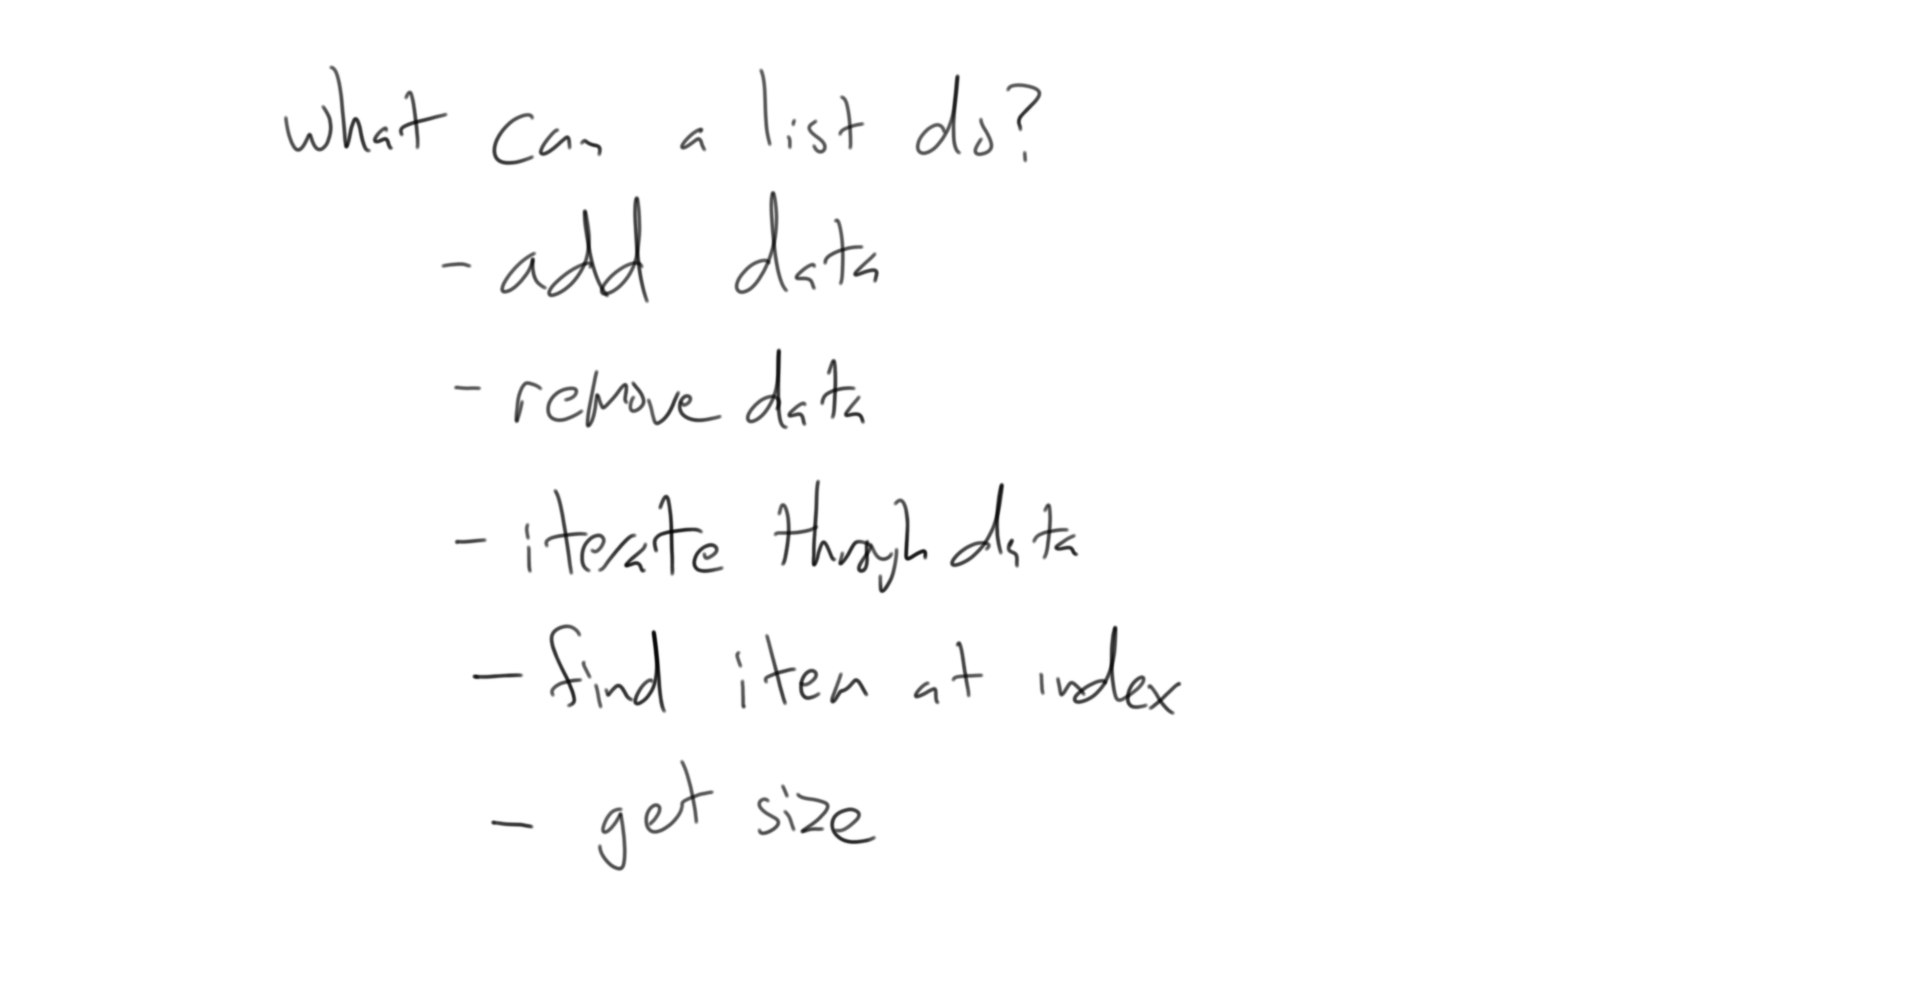 what can a list do?
- add data
- remove data
- iterate through data
- find item at index
- get size